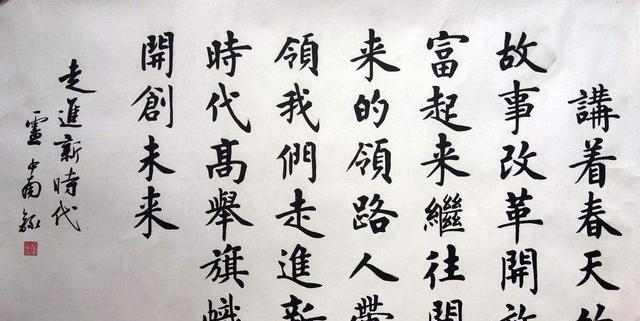 講着春天的
故事改革開放
富起来繼往開
来的領路人帶
領我們走進新
時代高舉旗幟
開創未来
走進新時代